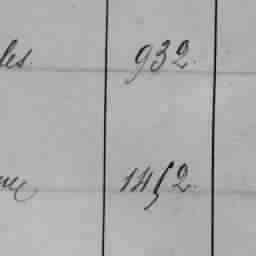 les. 932.
1452.